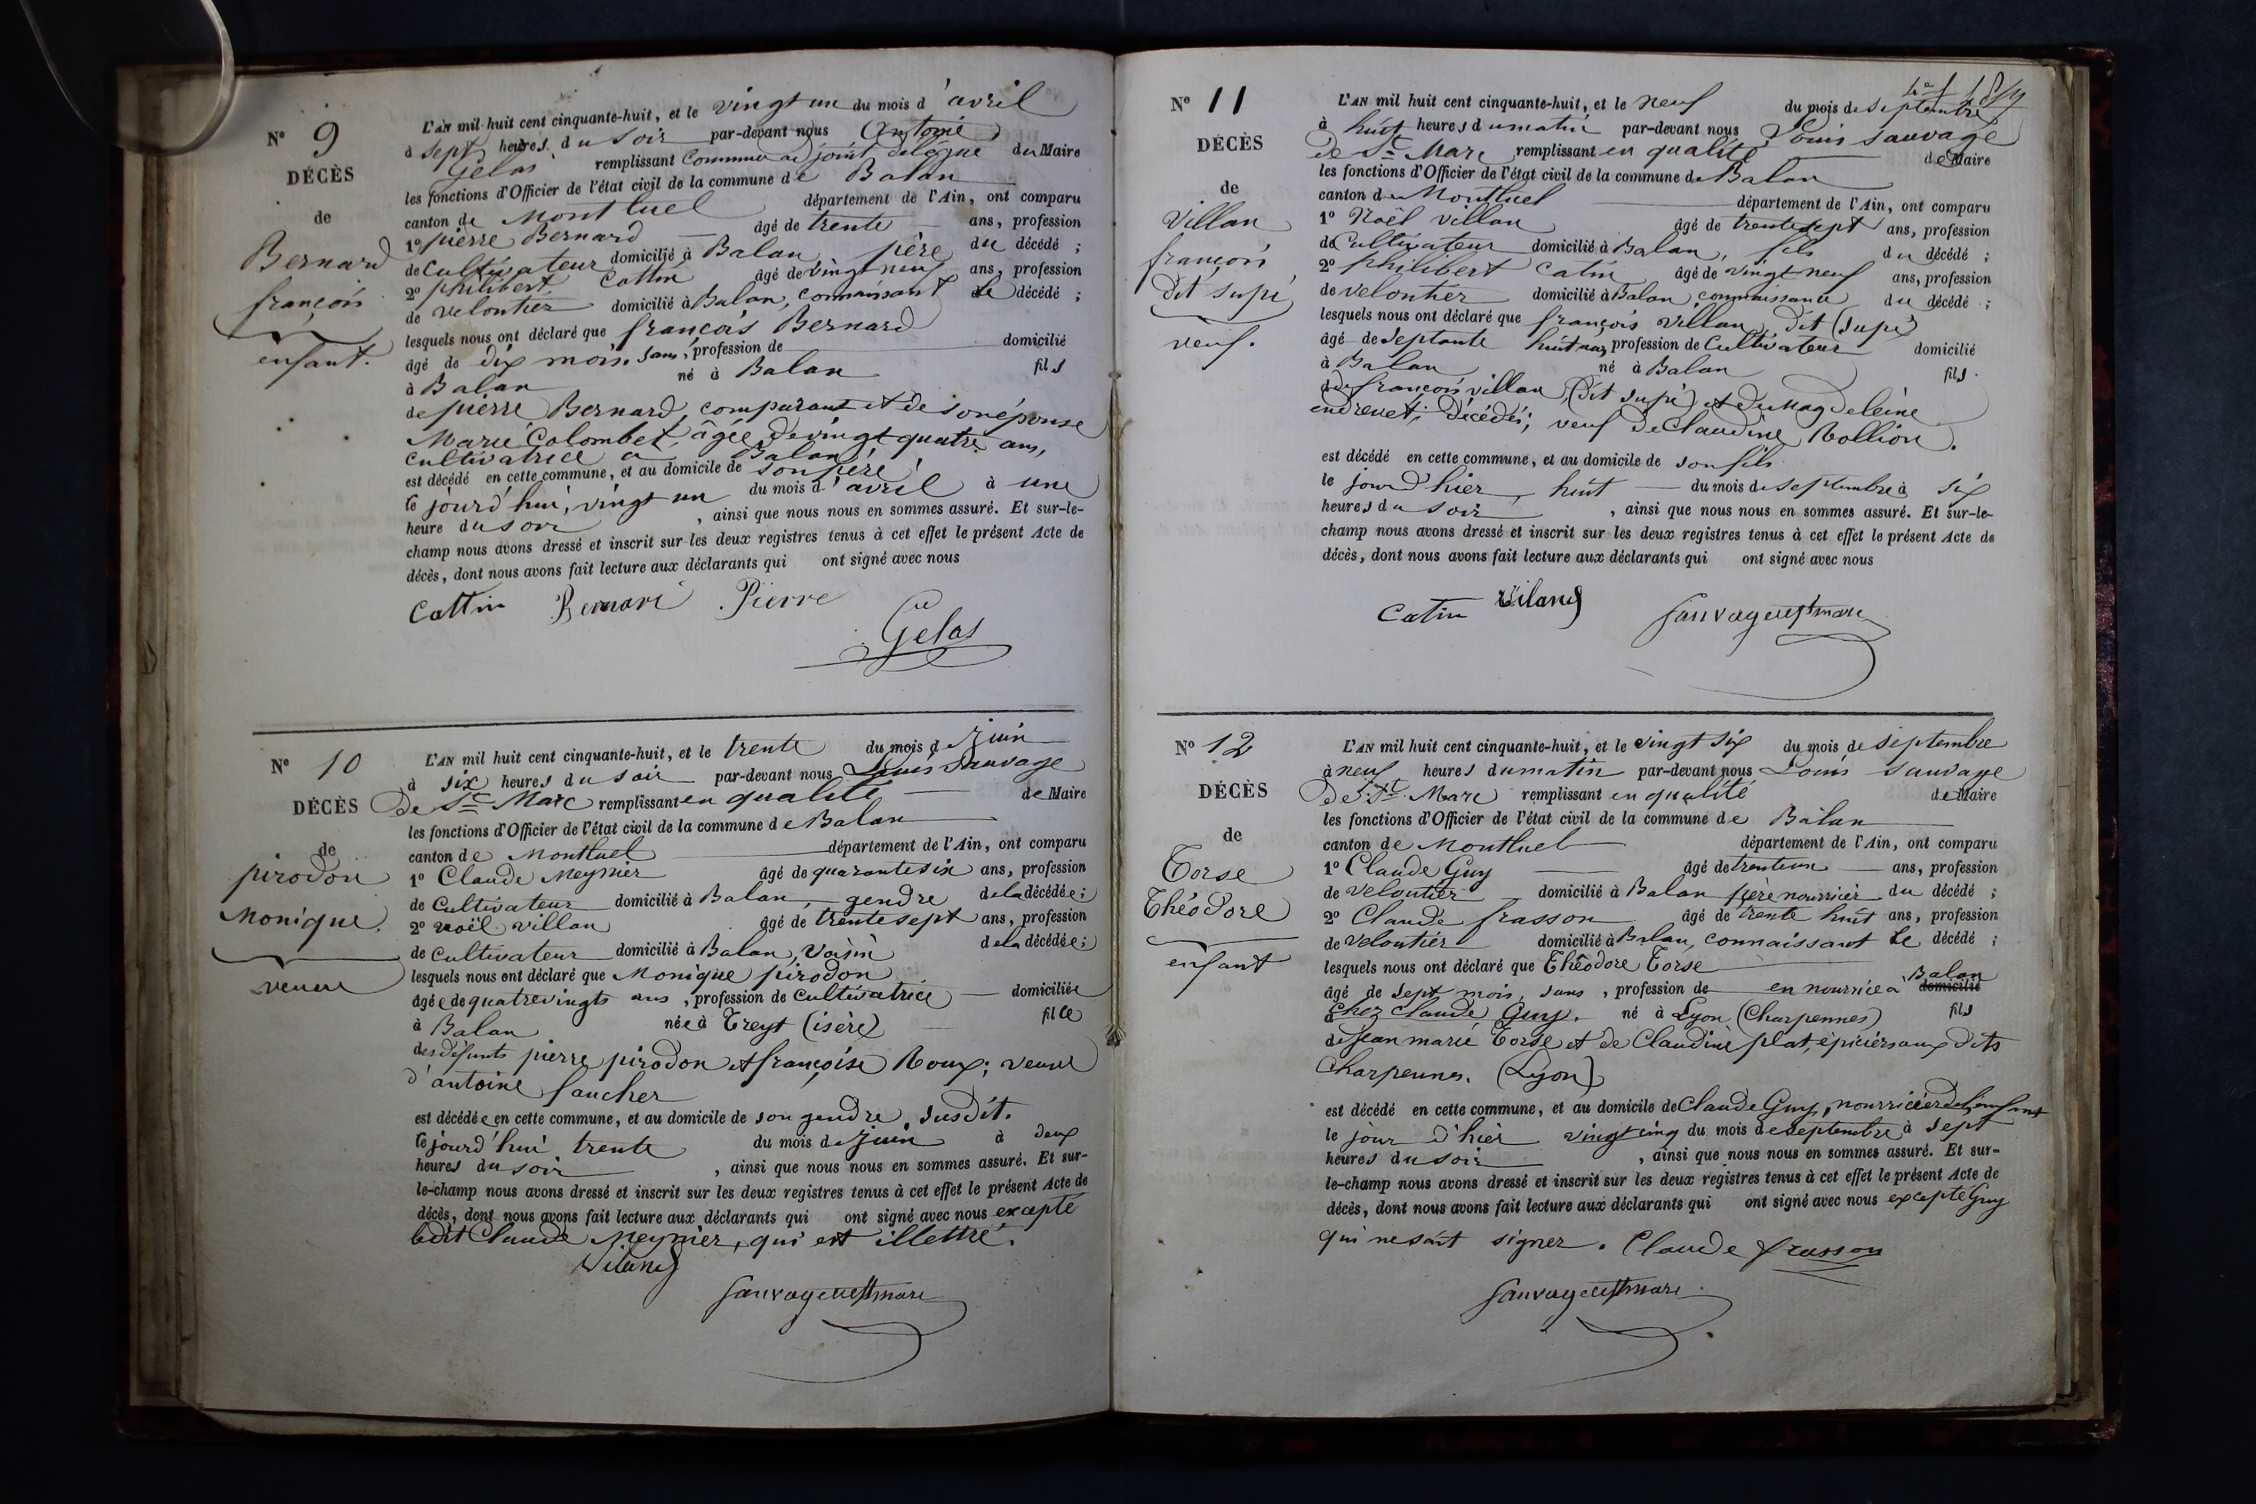 N° 9
DÉCÈS
de
Bernard
françois
enfant.
L'AN mil huit cent cinquante-huit, et le vingt un du mois d'avril
à sept heures du soir par-devant nous Antoine
Gelas remplissant comme adjoint délégué du Maire
les fonctions d'Officier de l'état civil de la commune de Balan
canton de Montluel département de l'Ain, ont comparu
1° pierre Bernard âgé de trente ans, profession
de cultivateur domicilié à Balan, père du décédé ;
2° philibert Cattin âgé de vingt neuf ans, profession
de veloutier domicilié à Balan, connaissant le décédé ;
lesquels nous ont déclaré que françois Bernard
âgé de dix mois, sans, profession de domicilié
à Balan né à Balan fils
de pierre Bernard, comparant et de son épouse
Marie Colombet, âgée de vingt quatre ans,
cultivatrice à Balan
est décédé en cette commune, et au domicile de son père
le jourd'hui, vingt un du mois d'avril à une
heure du soir , ainsi que nous nous en sommes assuré. Et sur-le-
champ nous avons dressé et inscrit sur les deux registres tenus à cet effet le présent Acte de
décès, dont nous avons fait lecture aux déclarants qui ont signé avec nous
Cattin Bernard Pierre
Gelas
N° 10
DÉCÈS
de
pirodon
Monique.
veuve
L'AN mil huit cent cinquante-huit, et le trente du mois de juin
à six heures du soir par-devant nous Louis Sauvage
De St Marc remplissant en qualité de Maire
les fonctions d'Officier de l'état civil de la commune de Balan
canton de Montluel département de l'Ain, ont comparu
1° Claude Meynier âgé de quarante six ans, profession
de cultivateur domicilié à Balan, gendre de la décédée ;
2° noël villan âgé de trente sept ans, profession
de cultivateur domicilié à Balan, Voisin de la décédée ;
lesquels nous ont déclaré que Monique pirodon
âgée de quatrevingts ans, profession de cultivatrice domiciliée
à Balan née à Treyt (isère) fille
des défunts pierre pirodon et françoise Roux ; veuve
d'antoine faucher
est décédée en cette commune, et au domicile de son gendre, susdit.
le jourd'hui trente du mois de juin à deux
heures du soir , ainsi que nous nous en sommes assuré. Et sur-
le-champ nous avons dressé et inscrit sur les deux registres tenus à cet effet le présent Acte de
décès, dont nous avons fait lecture aux déclarants qui ont signé avec nous excepté
ledit Claude Meynier, qui est illettré.
Viland
Sauvage de St marc
N° 11
DÉCÈS
de
Villan
françois
dit supi
veuf.
L'AN mil huit cent cinquante-huit, et le neuf du mois de septembre
à huit heures du matin par-devant nous Louis Sauvage
de St Marc remplissant en qualité de Maire
les fonctions d'Officier de l'état civil de la commune de Balan
canton de Montluel département de l'Ain, ont comparu
1° Noël Villan âgé de trente sept ans, profession
de Cultivateur domicilié à Balan, fils du décédé ;
2° philibert Catin âgé de vingt neuf ans, profession
de veloutier domicilié à Balan, connaissance du décédé ;
lesquels nous ont déclaré que françois Villan, dit (supi)
âgé de septante huit ans, profession de Cultivateur domicilié
à Balan né à Balan fils
de françois villan, (dit supi) et de Magdeleine
endrevet, décédés ; veuf de Claudine Rollion.
est décédé en cette commune, et au domicile de son fils
le jour d'hier, huit du mois de septembre à six
heures du soir , ainsi que nous nous en sommes assuré. Et sur-le-
champ nous avons dressé et inscrit sur les deux registres tenus à cet effet le présent Acte de
décès, dont nous avons fait lecture aux déclarants qui ont signé avec nous
Catin Viland Sauvage de St marc
N° 12
DÉCÈS
de
Torse
Théodore
enfant
L'AN mil huit cent cinquante-huit, et le vingt six du mois de septembre
à neuf heures du matin par-devant nous Louis Sauvage
de St Marc remplissant en qualité de Maire
les fonctions d'Officier de l'état civil de la commune de Balan
canton de Montluel département de l'Ain, ont comparu
1° Claude Guy âgé de trente un ans, profession
de veloutier domicilié à Balan père nourricier du décédé ;
2° Claude frasson âgé de trente huit ans, profession
de veloutier domicilié à Balan, connaissant le décédé ;
lesquels nous ont déclaré que Théodore Torse
âgé de sept mois, sans, profession de en nourrice à Balan domicilié
Chez Claude Guy. né à Lyon (Charpennes) fils
de Jean marie Torse et de Claudine plat, épiciers aux dits
Charpennes. (Lyon)
est décédé en cette commune, et au domicile de Claude Guy, nourricier de l'enfant
le jour d'hier vingt cinq du mois de septembre à sept
heures du soir , ainsi que nous nous en sommes assuré. Et sur-
le-champ nous avons dressé et inscrit sur les deux registres tenus à cet effet le présent Acte de
décès, dont nous avons fait lecture aux déclarants qui ont signé avec nous excepté Guy
qui ne sait signer. Claude frasson
Sauvage de St marc